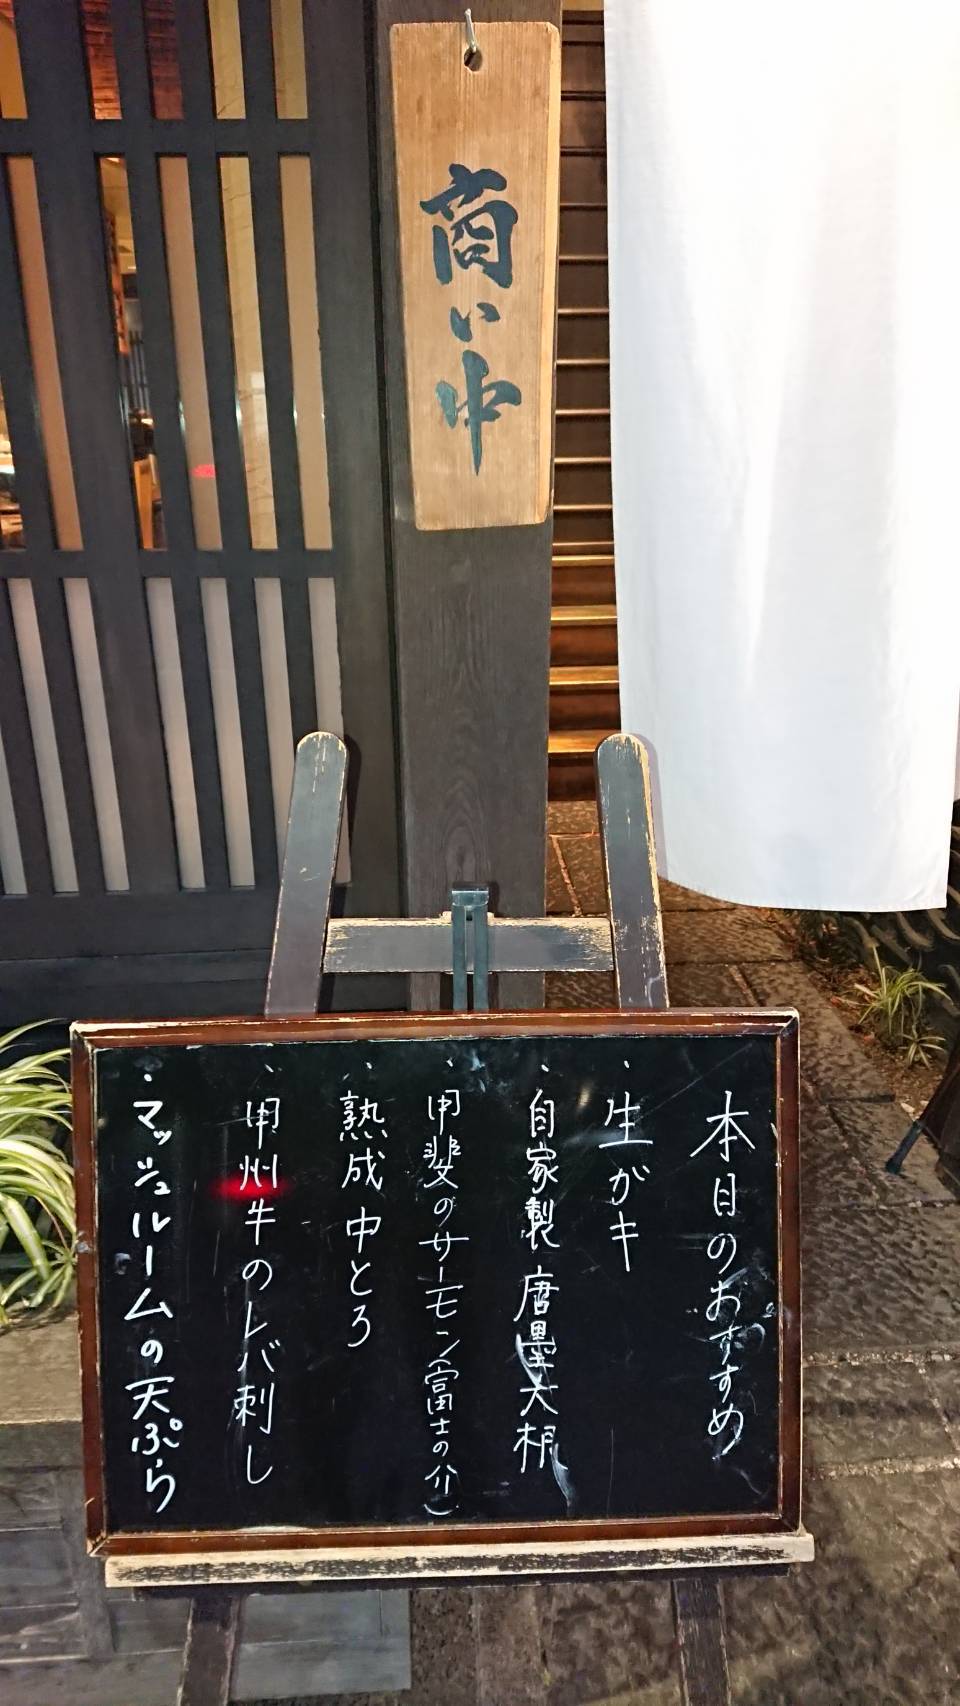 商い中
本日のおすすめ
・生がキ
・自家製唐墨大根
・甲斐のサーモン(富士の介)
・熟成中とろ
・甲州牛のレバ刺し
・マッシュルームの天ぷら